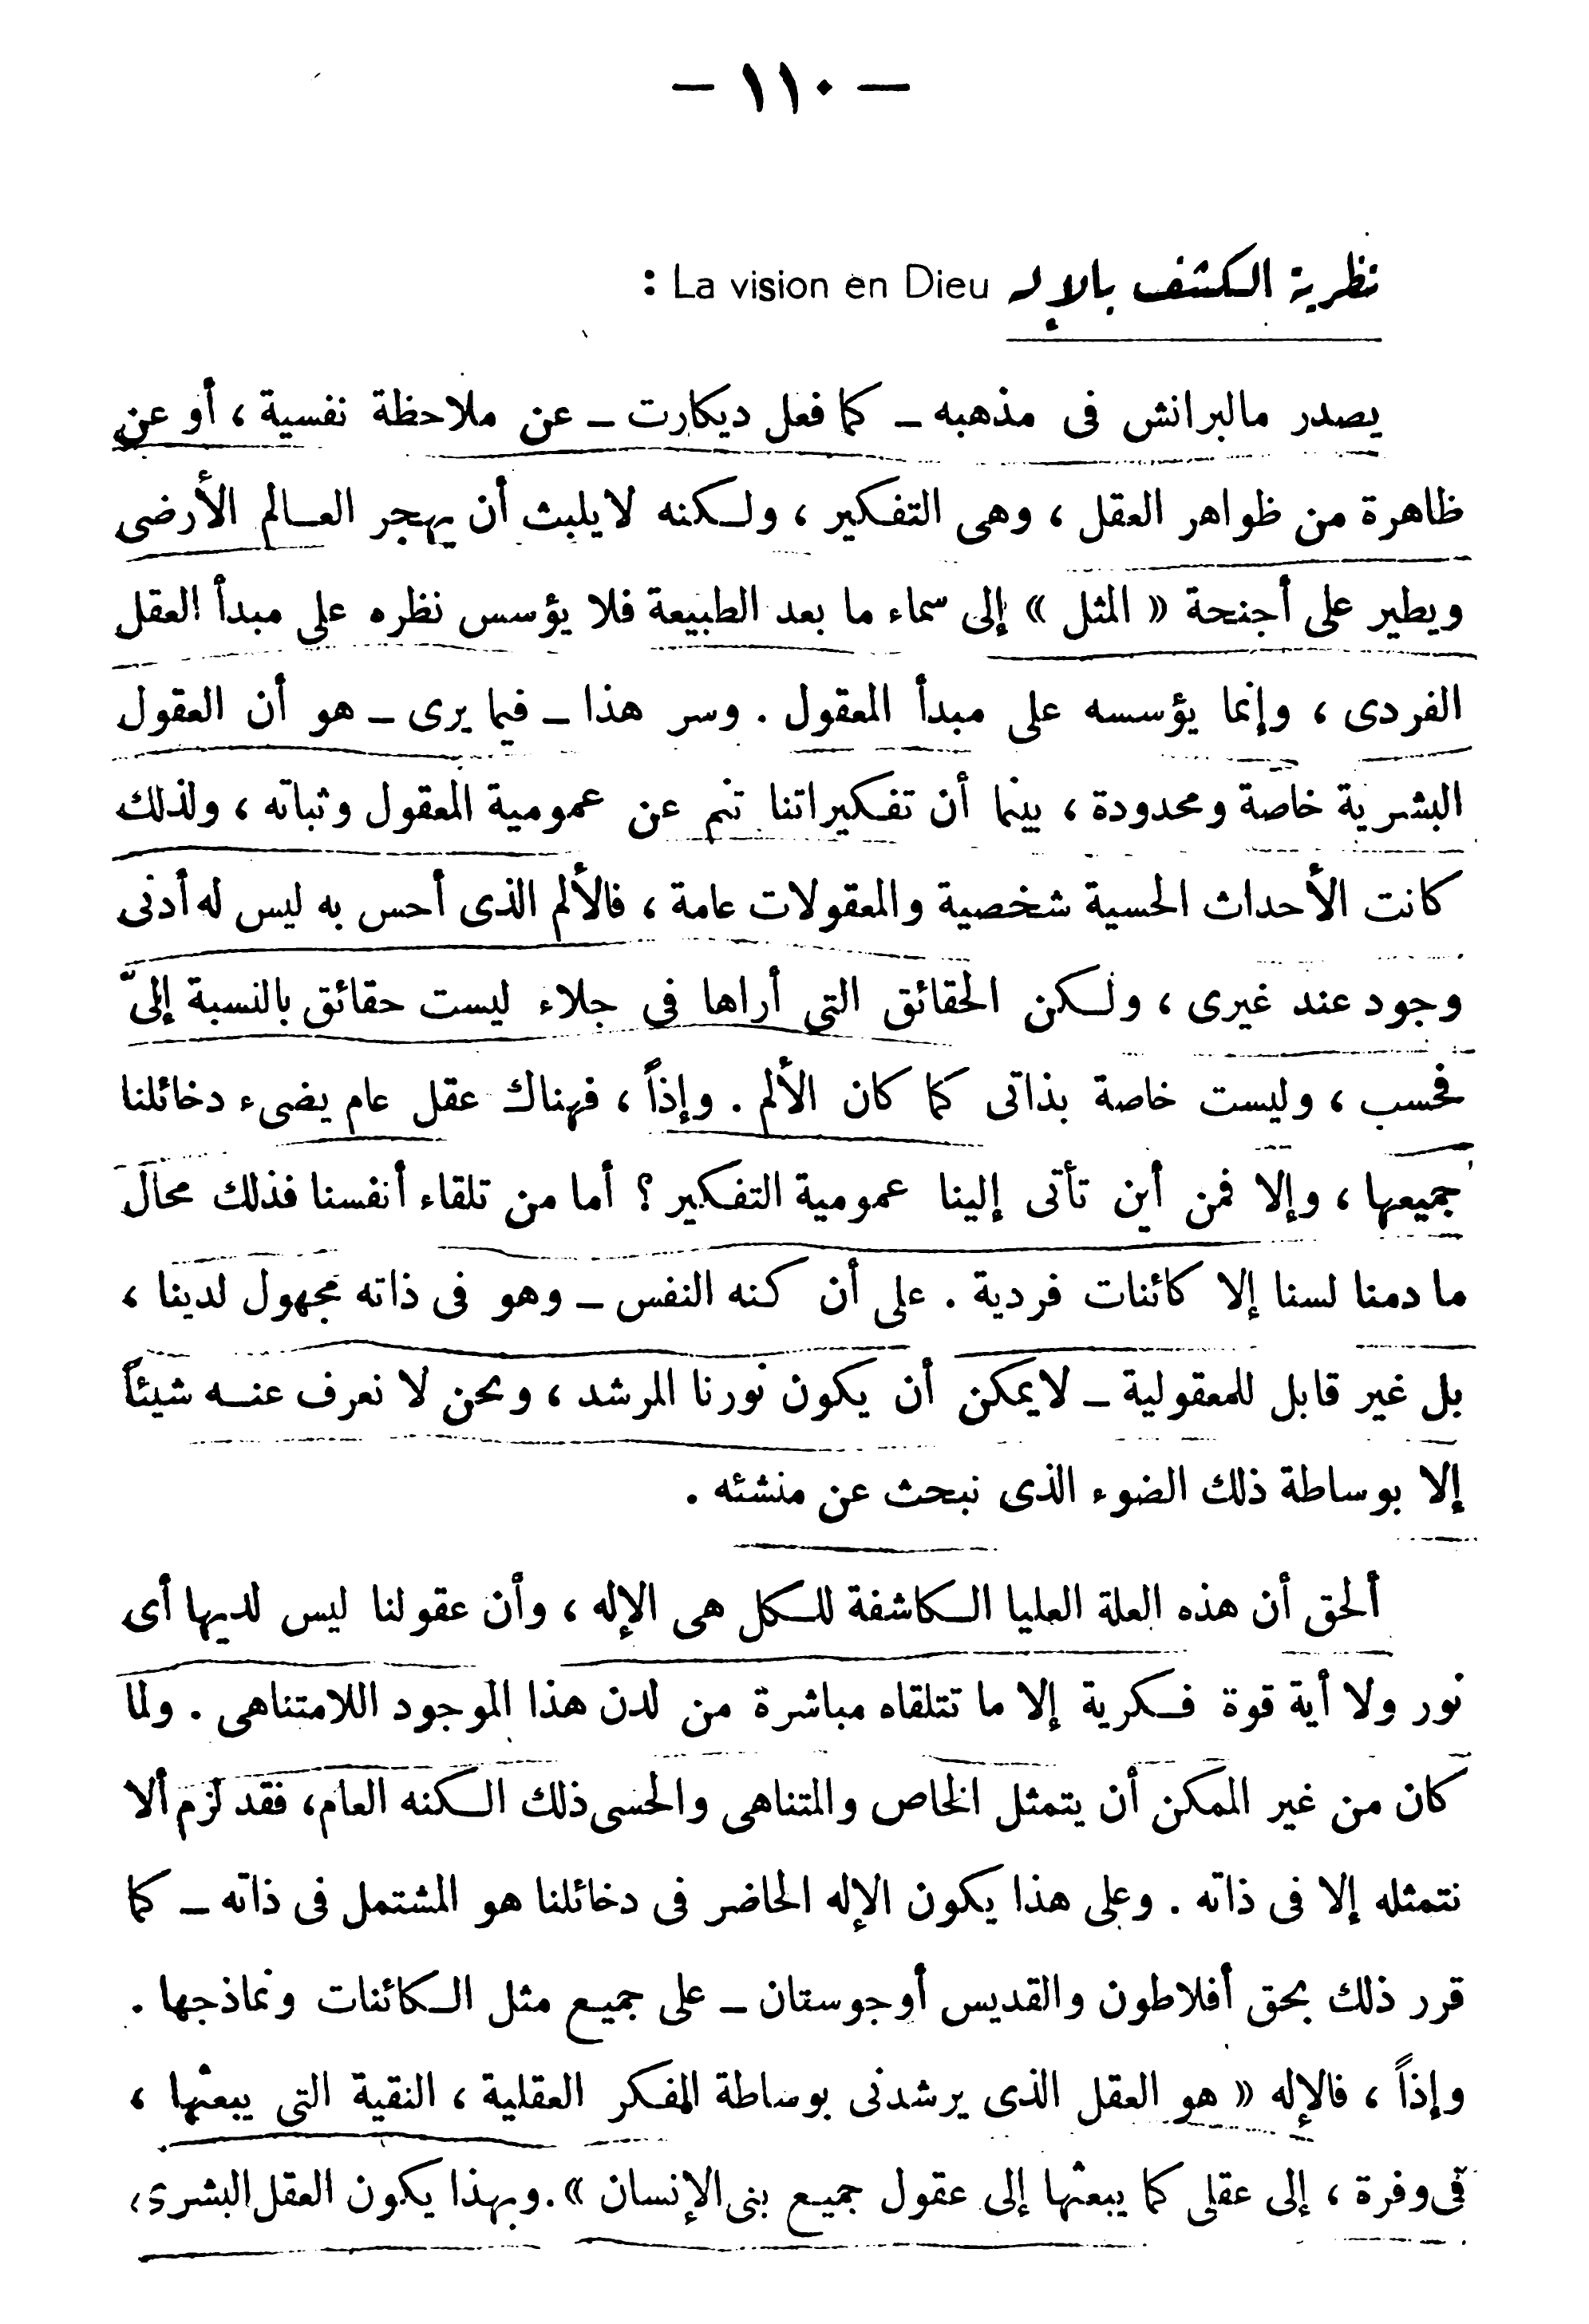 — ١١٠ —
نظرية الكشف بالإله La vision en Dieu :
يصدر مالبرانش فى مذهبه – كما فعل ديكارت – عن ملاحظة نفسية ، أو عن
ظاهرة من ظواهر العقل ، وهى التفكير ، ولكنه لايلبث أن يهجر العالم الأرضى
ويطير على أجنحة « المثل » إلى سماء ما بعد الطبيعة فلا يؤسس نظره على مبدأ العقل
الفردى ، وإنما يؤسسه على مبدأ المعقول . وسر هذا – فيما يرى – هو أن العقول
البشرية خاصة ومحدودة ، بينما أن تفكيراتنا تنم عن عمومية المعقول وثباته ، ولذلك
كانت الأحداث الحسية شخصية والمعقولات عامة ، فالألم الذى أحس به ليس له أدنى
وجود عند غيرى ، ولكن الحقائق التى أراها فى جلاء ليست حقائق بالنسبة إلىّ
فحسب ، وليست خاصة بذاتى كما كان الألم . وإذاً ، فهناك عقل عام يضىء دخائلنا
جميعها ، وإلا فمن أين تأتى إلينا عمومية التفكير ؟ أما من تلقاء أنفسنا فذلك محال
ما دمنا لسنا إلا كائنات فردية . على أن كنه النفس – وهو فى ذاته مجهول لدينا ،
بل غير قابل للمعقولية – لايمكن أن يكون نورنا المرشد ، ونحن لا نعرف عنه شيئاً
إلا بوساطة ذلك الضوء الذى نبحث عن منشئه .
ألحق أن هذه العلة العليا الكاشفة للكل هى الإله ، وأن عقولنا ليس لديها أى
نور ولا أية قوة فكرية إلا ما تتلقاه مباشرة من لدن هذا الموجود اللامتناهى . ولما
كان من غير الممكن أن يتمثل الخاص والمتناهى والحسى ذلك الكنه العام، فقد لزم ألا
نتمثله إلا فى ذاته . وعلى هذا يكون الإله الحاضر فى دخائلنا هو المشتمل فى ذاته – كما
قرر ذلك بحق أفلاطون والقديس أوجوستان – على جميع مثل الكائنات ونماذجها .
وإذاً ، فالإله « هو العقل الذى يرشدنى بوساطة الفكر العقلية ، النقية التى يبعثها ،
فى وفرة ، إلى عقلى كما يبعثها إلى عقول جميع بنى الإنسان » . وبهذا يكون العقل البشرى ،